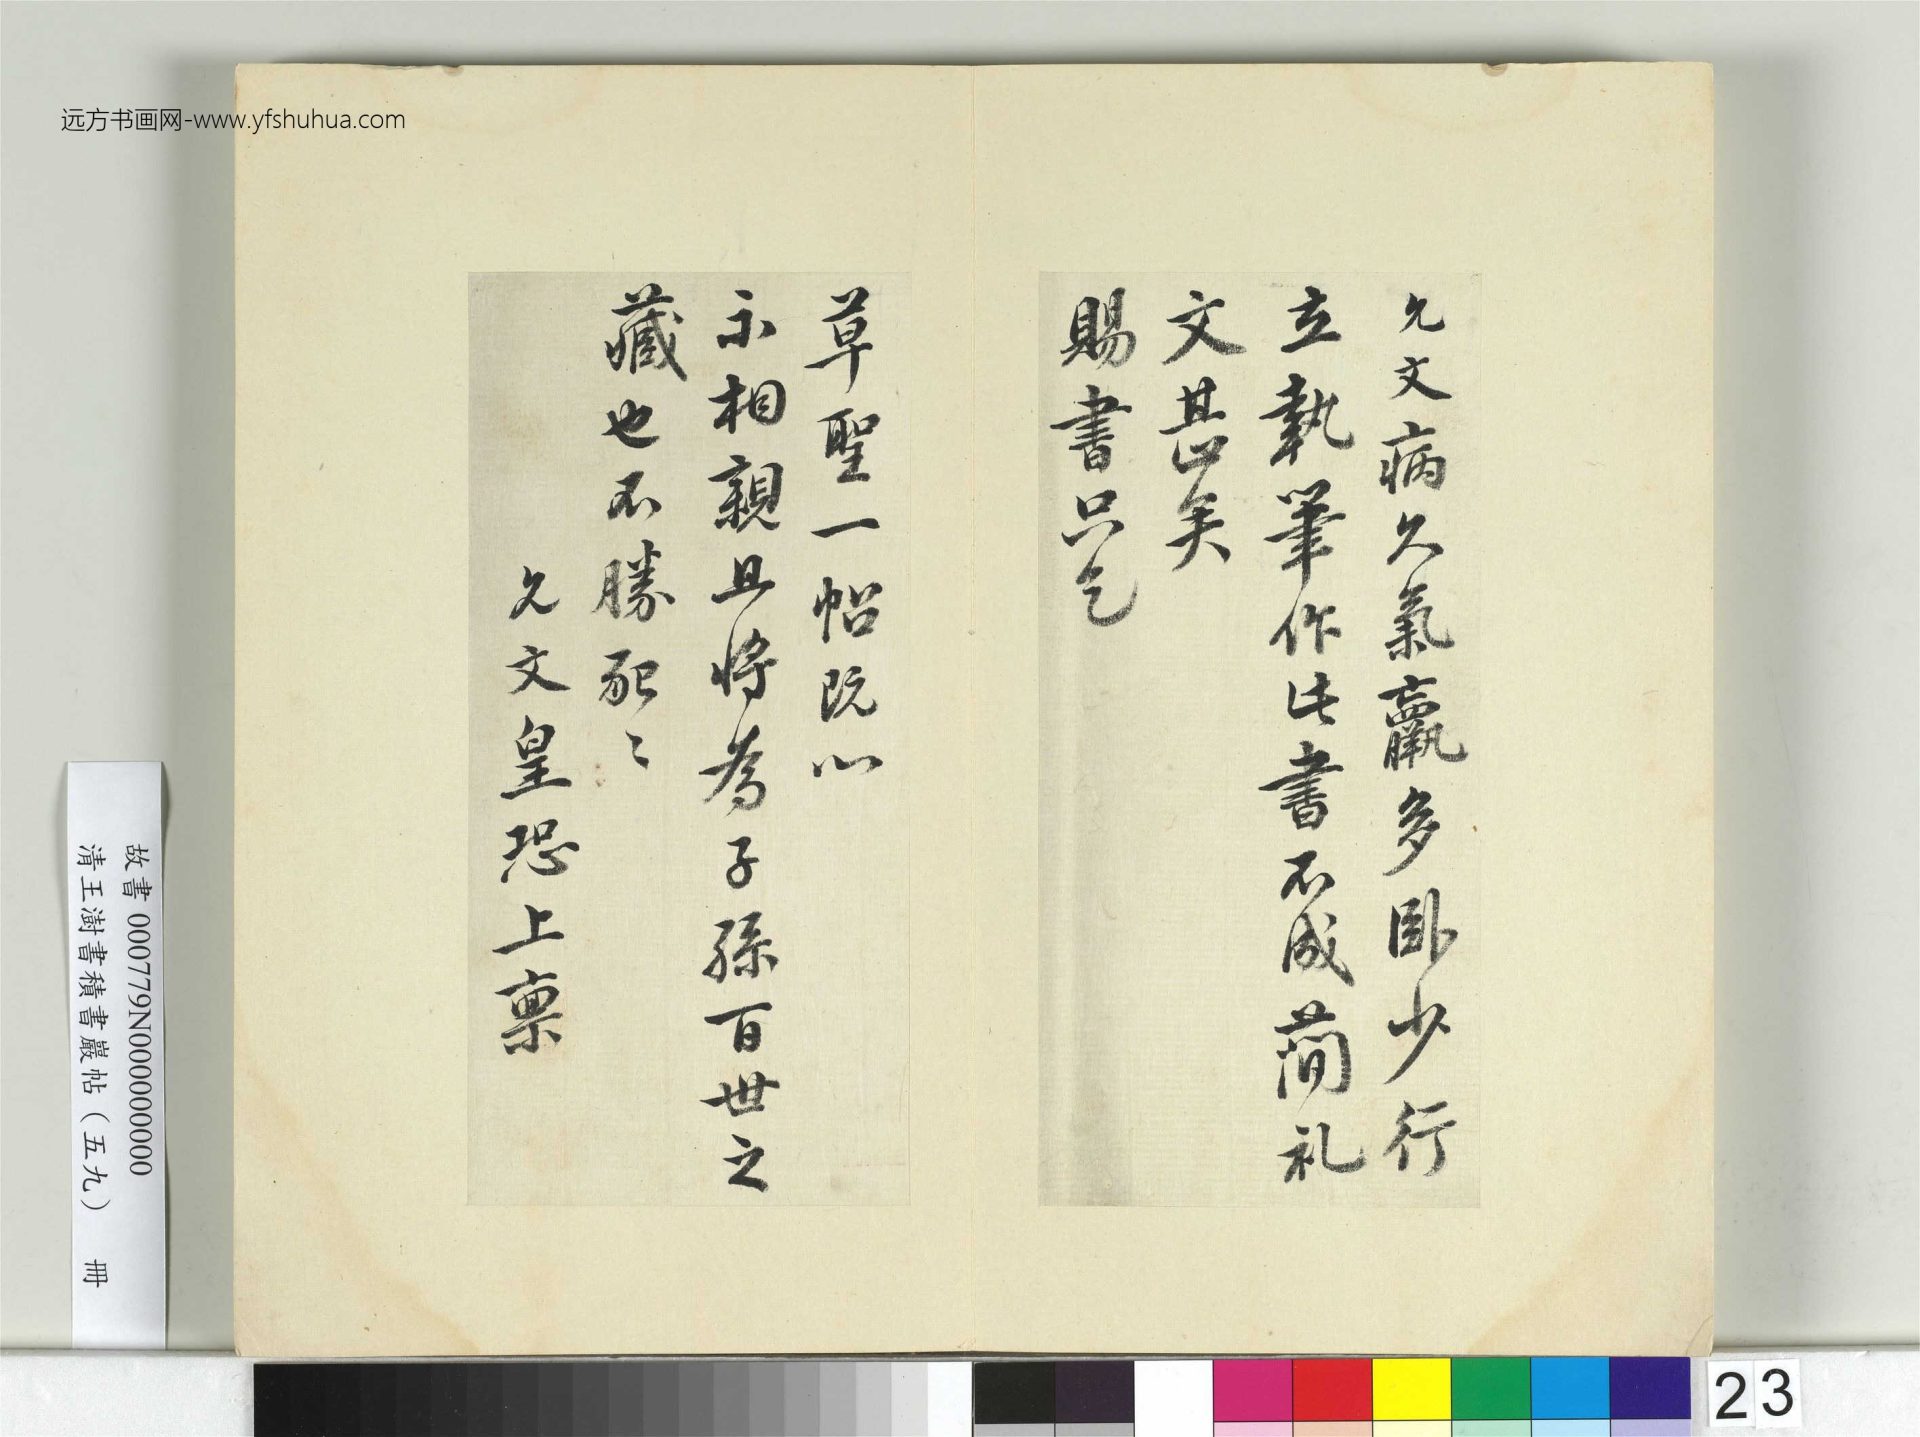 远方书画网-www.yfshuhua.com
允文病久氣羸多臥少行
立執筆作此書不成簡礼
文甚矣
賜書只乞
草聖一帖既以
示相親且將為子孫百世之
藏也不勝
允文皇恐上稟
故書 000779N000000000
清王澍書積書巖帖(五九) 冊
23